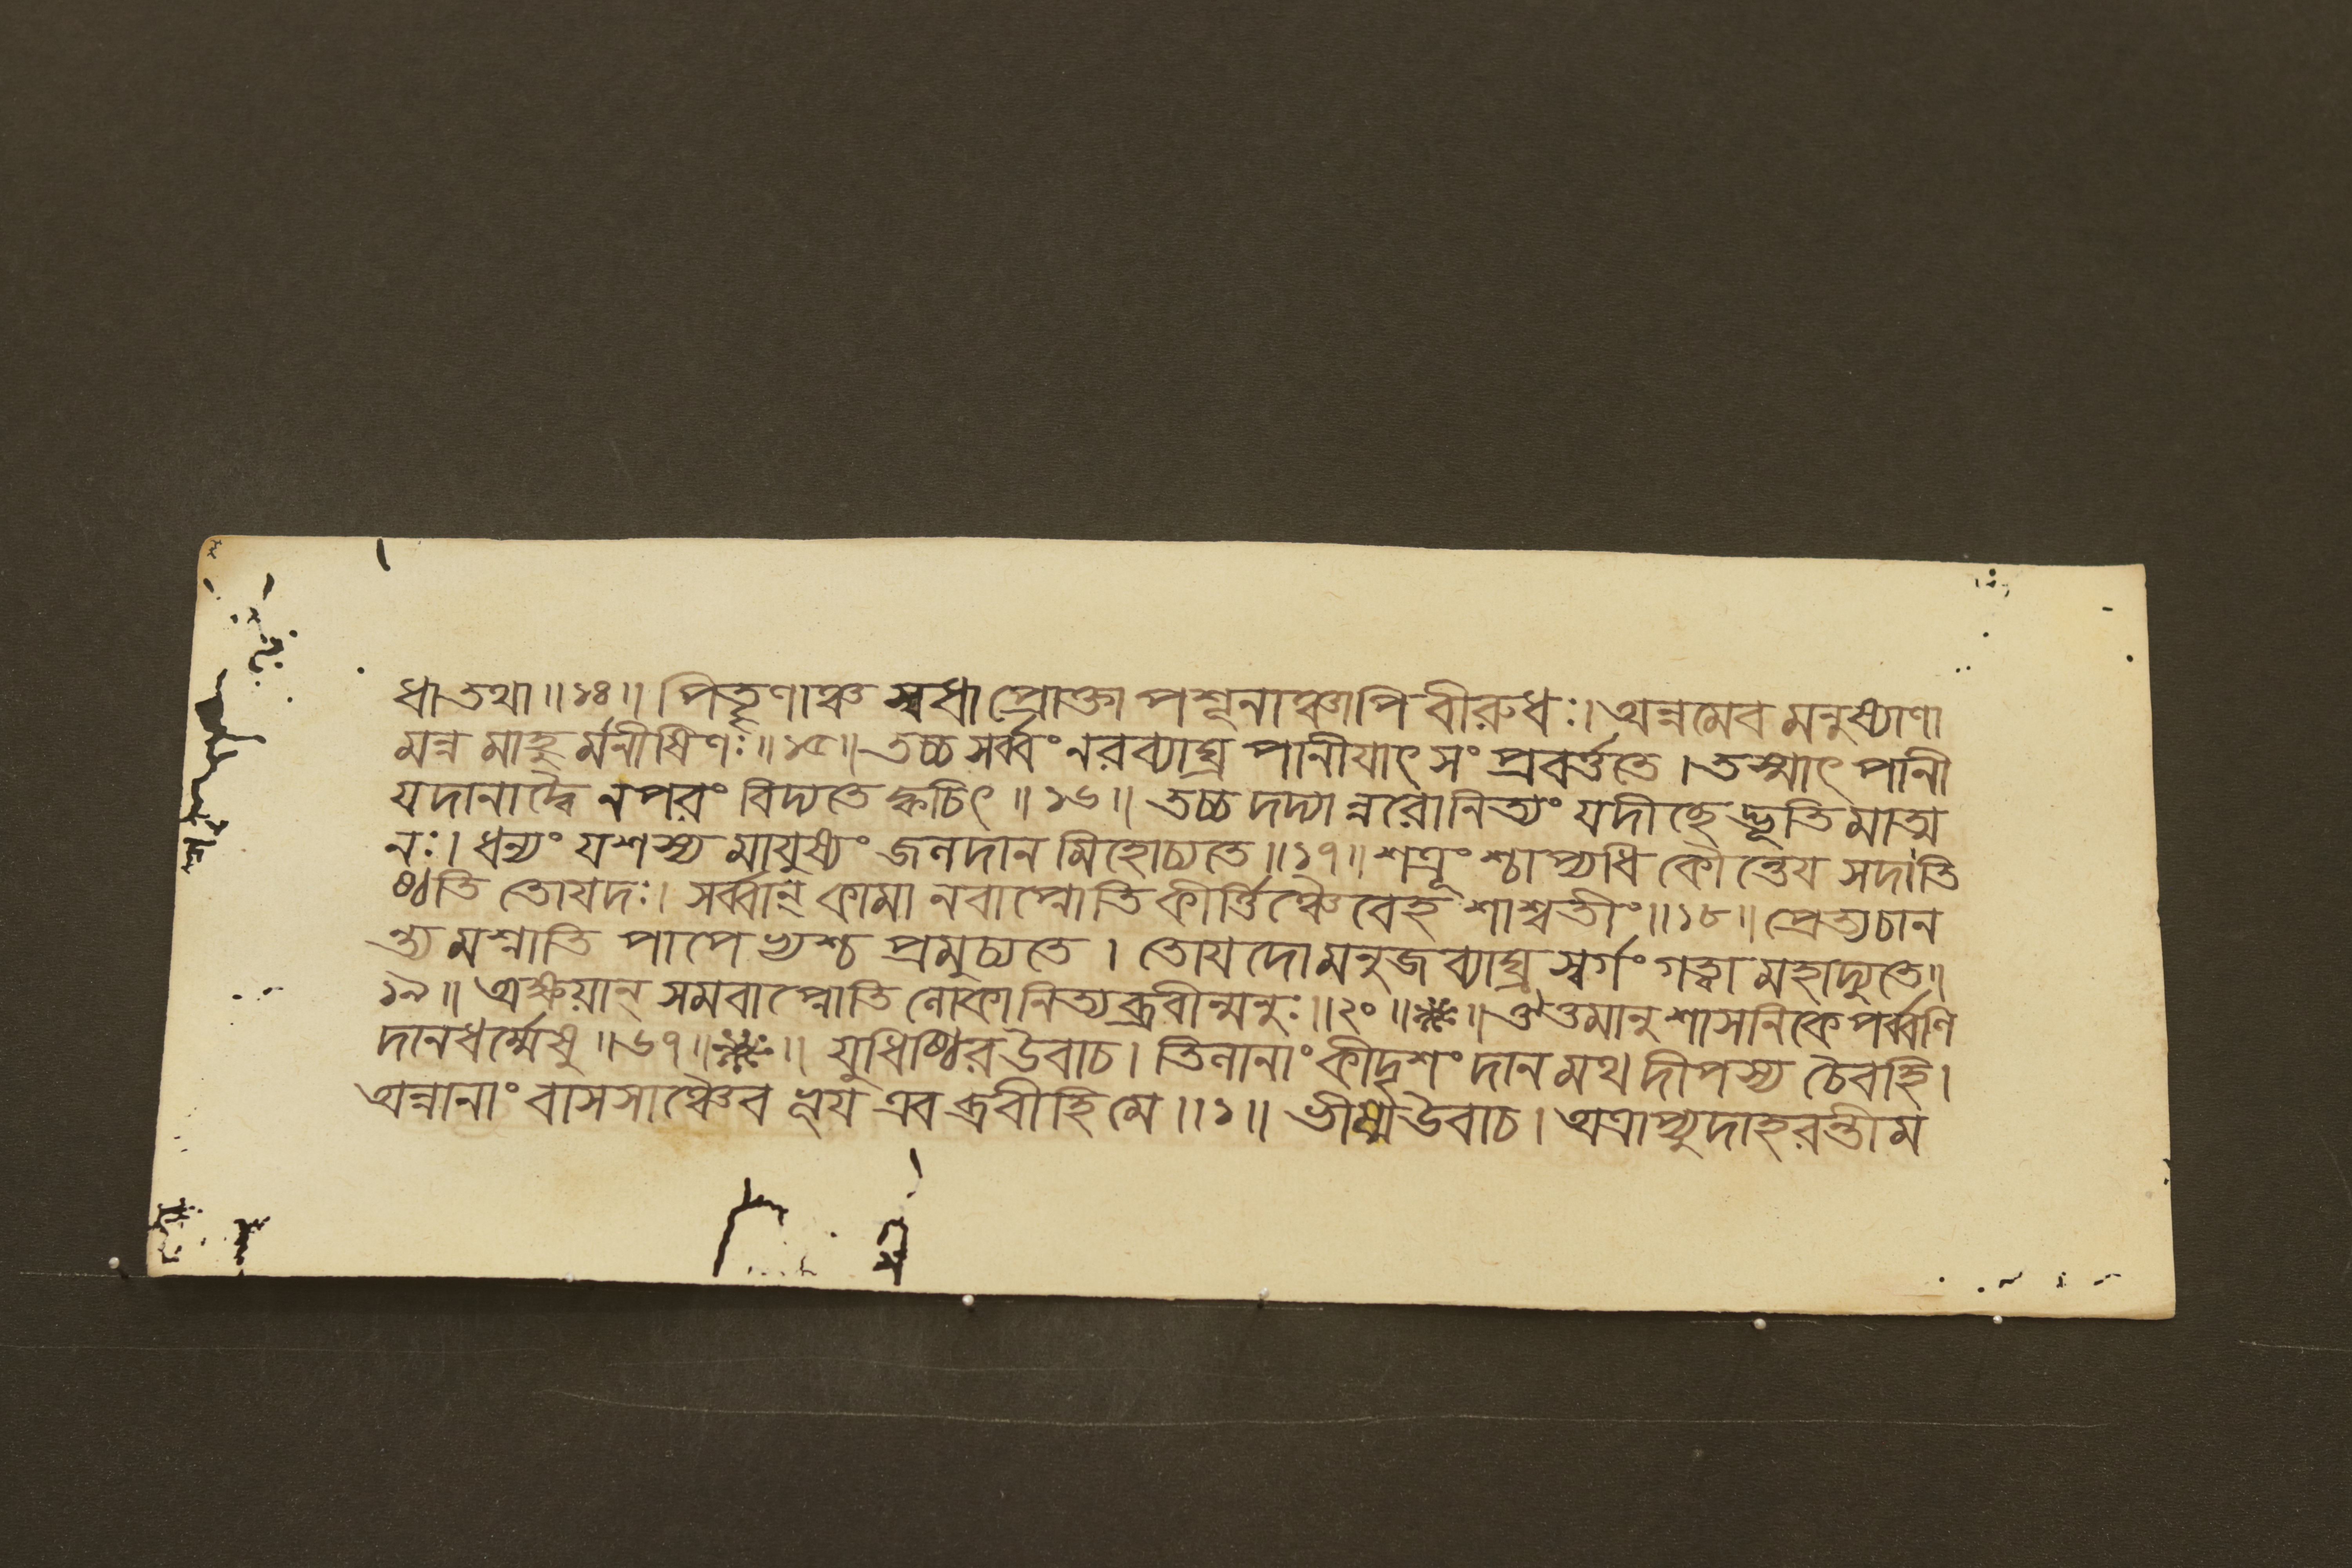 ধা তথা ॥ ১৪ ॥ পিতৄণাঞ্চ স্বধা প্রোক্তা পশূনাঞ্চাপি বীরুধঃ । অন্নমেব মনুষ্যাণা
মন্ন মাহু র্মনীষিণঃ ॥ ১৫ ॥ তচ্চ সর্ব্বং নরব্যাঘ্র পানীযাৎ সং প্রবর্ত্ততে । তস্মাৎ পানী
যদানাদ্বৈ ন পরং বিদ্যতে ক্বচিৎ ॥ ১৬ ॥ তচ্চ দদ্যা ন্নরো নিত্যং যদীচ্ছে দ্ভূতি মাত্ম
নঃ । ধন্যং যশস্য মাযুষ্যং জলদান মিহোচ্যতে ॥ ১৭ ॥ শত্রূং শ্চাপ্যধি কৌন্তেয সদাতি
ষ্ঠতি তোযদঃ । সর্ব্বান্ কামা নবাপ্নোতি কীর্ত্তিঞ্চৈবেহ শাশ্বতীং ॥ ১৮ ॥ প্রেত্য চান
ন্ত্য মশ্নাতি পাপেভ্যশ্চ প্রমুচ্যতে । তোযদো মনুজ ব্যাঘ্র স্বর্গং গত্বা মহাদ্যুতে ॥
১৯ ॥ অক্ষয়ান্ সমবাপ্নোতি লোকানিত্যব্রবীন্মনুঃ ॥ ২০ ॥ ❋ ॥ ঔত্তমানুশাসনিকে পর্ব্বণি
দানধর্ম্মেষু ॥ ৬৭ ॥ ❋ ॥ যুধিষ্ঠির উবাচ । তিলানাং কীদৃশং দান মথ দীপস্য চৈবহি ।
অন্নানাং বাসসাঞ্চৈব ভূয এব ব্রবীহি মে ॥ ১ ॥ ভীষ্ম উবাচ । অত্রাপ্যুদাহরন্তীম